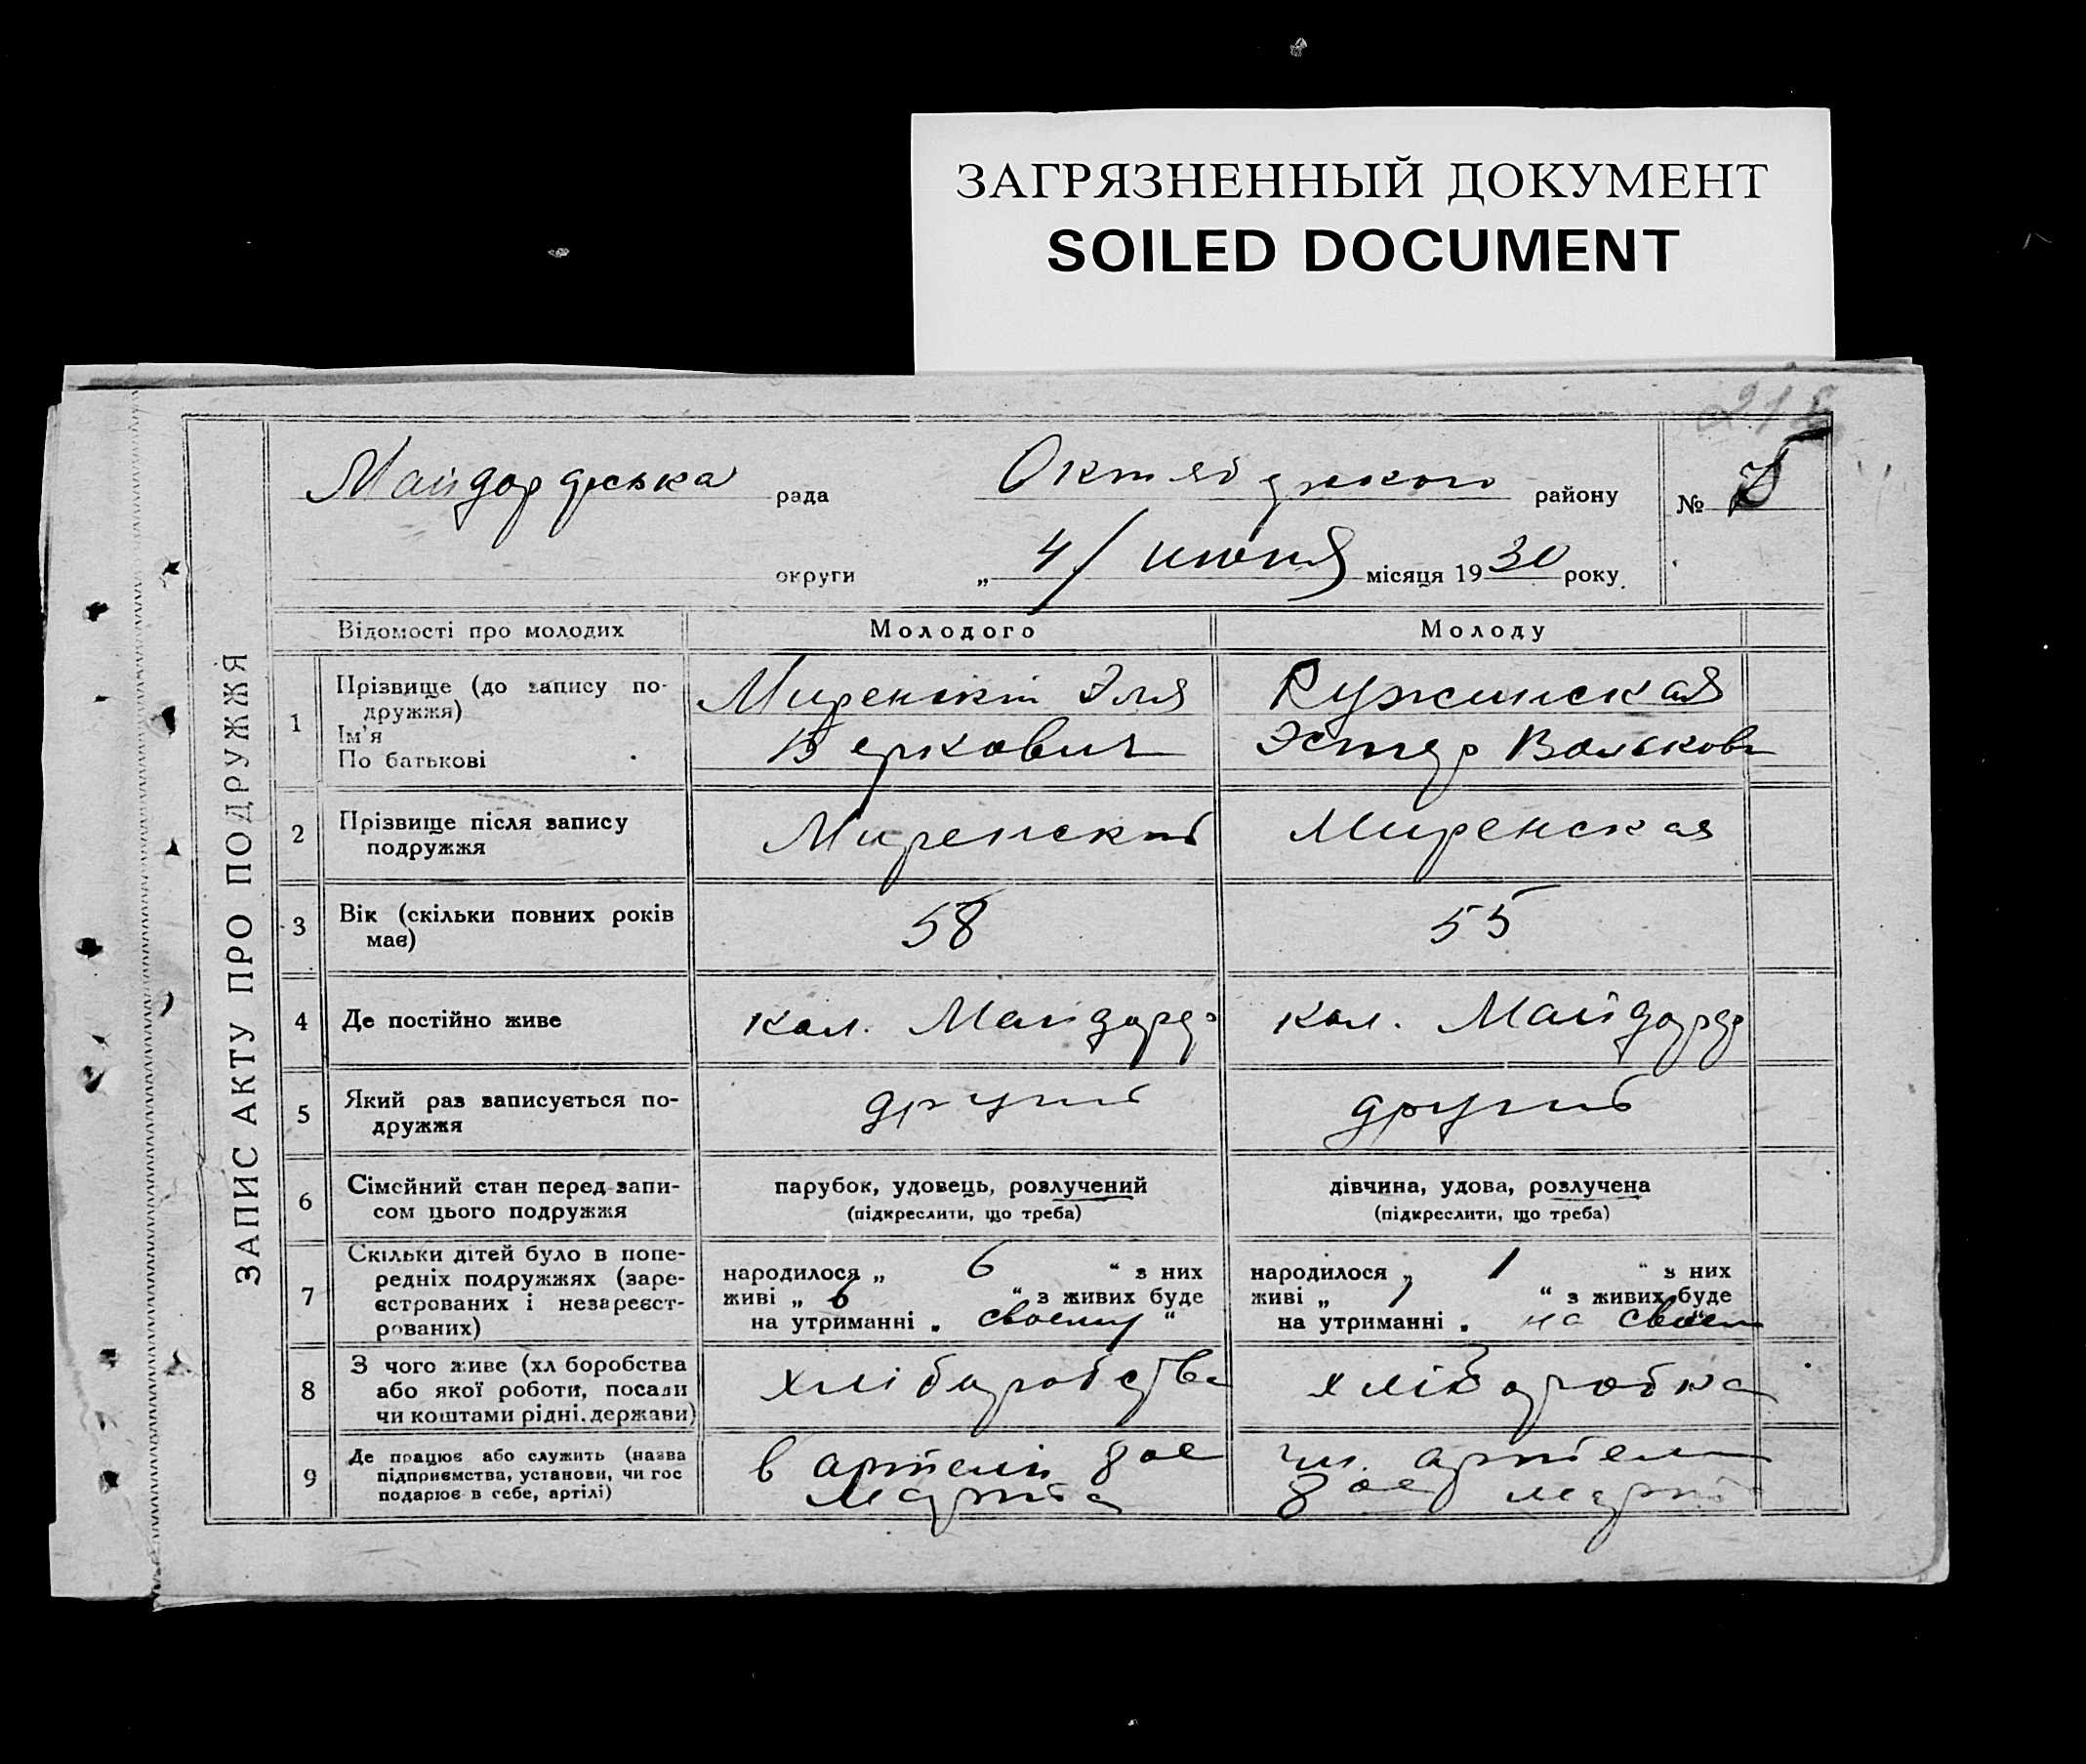 ЗАГРЯЗНЕННЫЙ ДОКУМЕНТ
SOILED DOCUMENT
ЗАПИС АКТУ ПРО ПОДРУЖЖЯ
Майдордська рада
района району
№
округи
„ 4/ июня місяця 1930 року.
Відомості про молодих Молодого Молоду
1 Прізвище (до запису по-
дружжя)
Ім'я
По батькові
Миренский Эля
Беркович
Ружинская
Эстер Вольков
2 Прізвище після запису
подружжя
Миренский Миренская
3 Вік (скільки повних років
має)
58 55
4 Де постійно живе
кол. Майдорф кол. Майдорф
5 Який раз записується по-
дружжя
другий другий
6 Сімейний стан перед запи-
сом цього подружжя
парубок, удовець, розлучений
(підкреслити, що треба)
дівчина, удова, розлучена
(підкреслити, що треба)
7 Скільки дітей було в попе-
редніх подружжях (заре-
єстрованих і незареєст-
рованих)
народилося „ 6 “ з них
живі „ 6 “ з живих буде
на утриманні „ своему “
народилося „ 1 “ з них
живі „ 1 “ з живих буде
на утриманні „ на своем
8 З чого живе (хл боробства
або якої роботи, посади
чи коштами рідні. держави)
хліборобства хліборобка
9 Де працює або служить (назва
підприємства, установи, чи гос
подарює в себе, артілі)
в артели 8ое
марта
чл. артели
8ое март